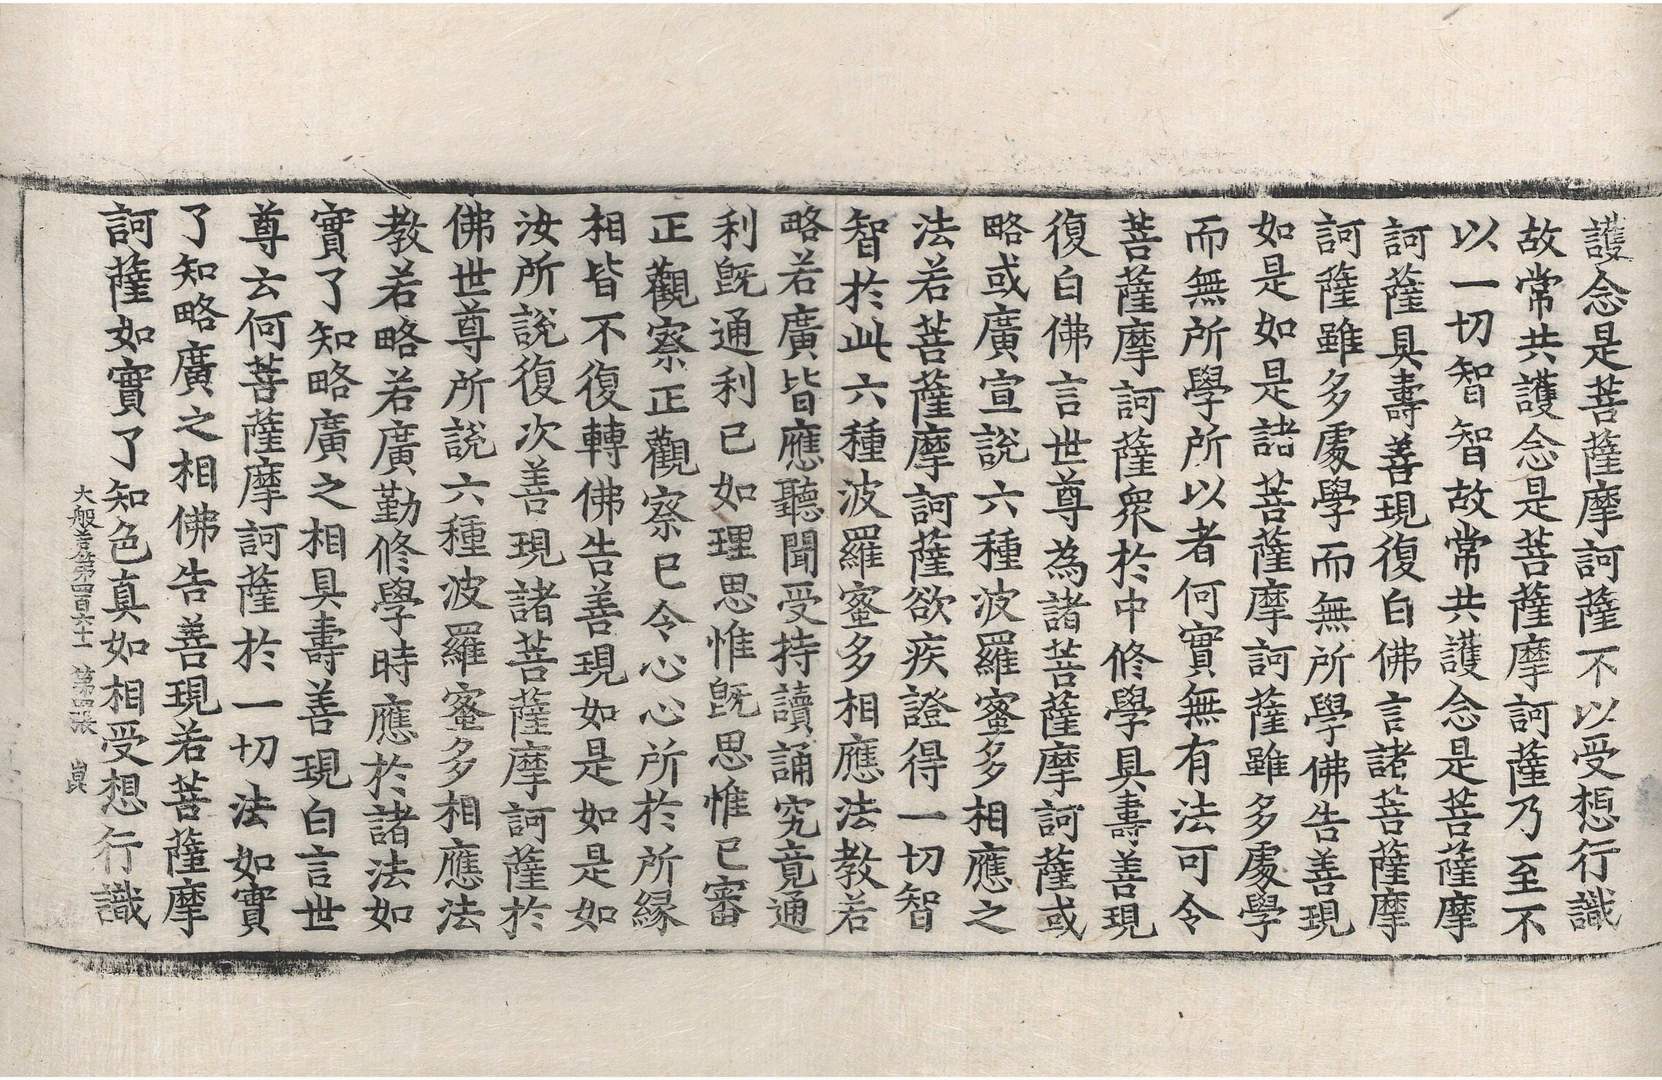 護念是菩薩摩訶薩不以受想行識
故常共護念是菩薩摩訶薩乃至不
以一切智智故常共護念是菩薩摩
訶薩具壽善現復白佛言諸菩薩摩
訶薩雖多處學而無所學佛告善現
如是如是諸菩薩摩訶薩雖多處學
而無所學所以者何實無有法可令
菩薩摩訶薩衆於中修學具壽善現
復白佛言世尊為諸菩薩摩訶薩或
略或廣宣說六種波羅蜜多相應之
法若菩薩摩訶薩欲疾證得一切智
智於此六種波羅蜜多相應法教若
略若廣皆應聽聞受持讀誦究竟通
利旣通利已如理思惟旣思惟已審
正觀察正觀察已令心心所於所緣
相皆不復轉佛告善現如是如是如
汝所說復次善現諸菩薩摩訶薩於
佛世尊所說六種波羅蜜多相應法
教若略若廣勤修學時應於諸法如
實了知略廣之相具壽善現白言世
尊云何菩薩摩訶薩於一切法如實
了知略廣之相佛告善現若菩薩摩
訶薩如實了知色真如相受想行識
大般若第四百六十一 第四張 崑